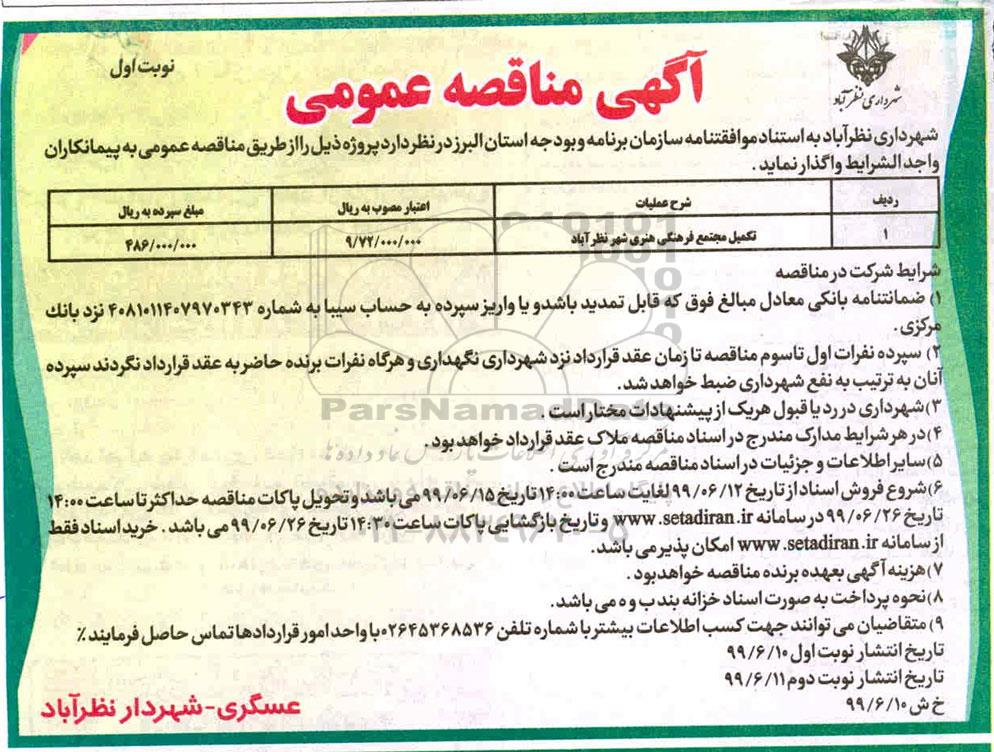 شهرداری نظرآباد
نوبت اول
آگهی مناقصه عمومی
شهرداری نظرآباد به استناد موافقتنامه سازمان برنامه و بودجه استان البرز در نظر دارد پروژه ذیل را از طریق مناقصه عمومی به پیمانکاران
واجد الشرایط واگذار نماید .
ردیف شرح عملیات اعتبار مصوب به ریال مبلغ سپرده به ریال
۱ تکمیل مجتمع فرهنگی هنری شهر نظر آباد ۹/۷۲۰/۰۰۰/۰۰۰ ۴۸۶/۰۰۰/۰۰۰
شرایط شرکت در مناقصه
۱) ضمانتنامه بانکی معادل مبالغ فوق که قابل تمدید باشد و یا واریز سپرده به حساب سیبا به شماره ۴۰۸۱۰۱۱۴۰۷۹۷۰۳۴۳ نزد بانک
مرکزی .
۲) سپرده نفرات اول تا سوم مناقصه تا زمان عقد قرارداد نزد شهرداری نگهداری و هرگاه نفرات برنده حاضر به عقد قرارداد نگردند سپرده
آنان به ترتیب به نفع شهرداری ضبط خواهد شد.
۳) شهرداری در رد یا قبول هریک از پیشنهادات مختار است .
۴) در هر شرایط مدارک مندرج در اسناد مناقصه ملاک عقد قرارداد خواهد بود .
۵) سایر اطلاعات و جزئیات در اسناد مناقصه مندرج است .
۶) شروع فروش اسناد از تاریخ ۹۹/۰۶/۱۲ لغایت ساعت ۱۴:۰۰ تاریخ ۹۹/۰۶/۱۵ می باشد و تحویل پاکات مناقصه حداکثر تا ساعت ۱۴:۰۰
تاریخ ۹۹/۰۶/۲۶ در سامانه www.setadiran.ir و تاریخ بازگشایی پاکات ساعت ۱۴:۳۰ تاریخ ۹۹/۰۶/۲۶ می باشد . خرید اسناد فقط
از سامانه www.setadiran.ir امکان پذیر می باشد.
۷) هزینه آگهی بعهده برنده مناقصه خواهد بود .
۸) نحوه پرداخت به صورت اسناد خزانه بند ب و ه می باشد.
۹) متقاضیان می توانند جهت کسب اطلاعات بیشتر با شماره تلفن ۰۲۶۴۵۳۶۸۵۳۶ با واحد امور قراردادها تماس حاصل فرمایند ٪
تاریخ انتشار نوبت اول ۹۹/۶/۱۰
تاریخ انتشار نوبت دوم ۹۹/۶/۱۱
خ ش ۹۹/۶/۱۰
عسگری - شهردار نظرآباد
ParsNamadData